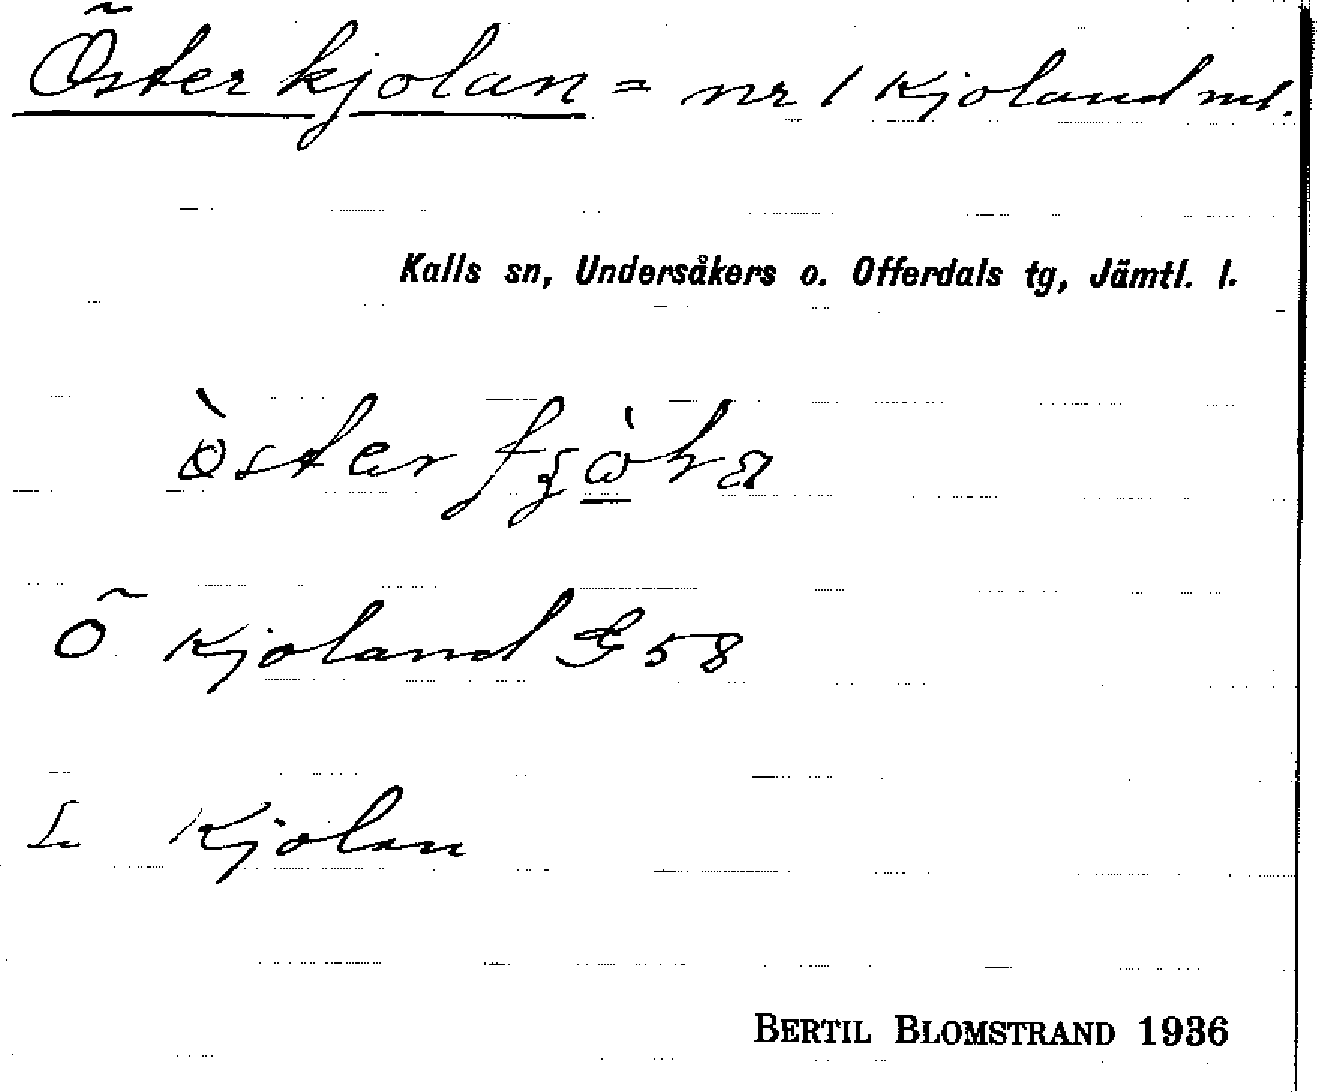 Österkjolan = nr 1 Kjoland ml.
Kalls sn, Undersåkers o. Offerdals tg, Jämtl. l.
Ö Kjoland G 58
Kjolan
BERTIL BLOMSTRAND 1936